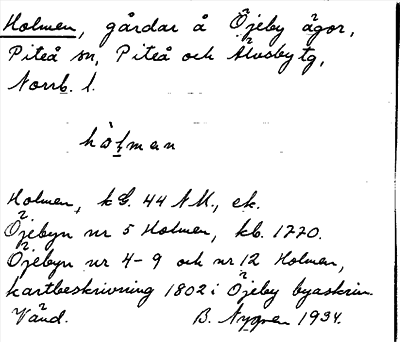 Holmen, gårdar å Öjeby ägor,
Piteå sn, Piteå och Älvsby tg,
Norrb. l.
hòlman
Holmen, kG. 44 NM., ek.
Öjebyn nr 5 Holmen, kb. 1770.
Öjebyn nr 4-9 och nr 12 Holmen,
kartbeskrivning 1802 i Öjeby byaskrin.
Vänd. B. Nygren 1934.